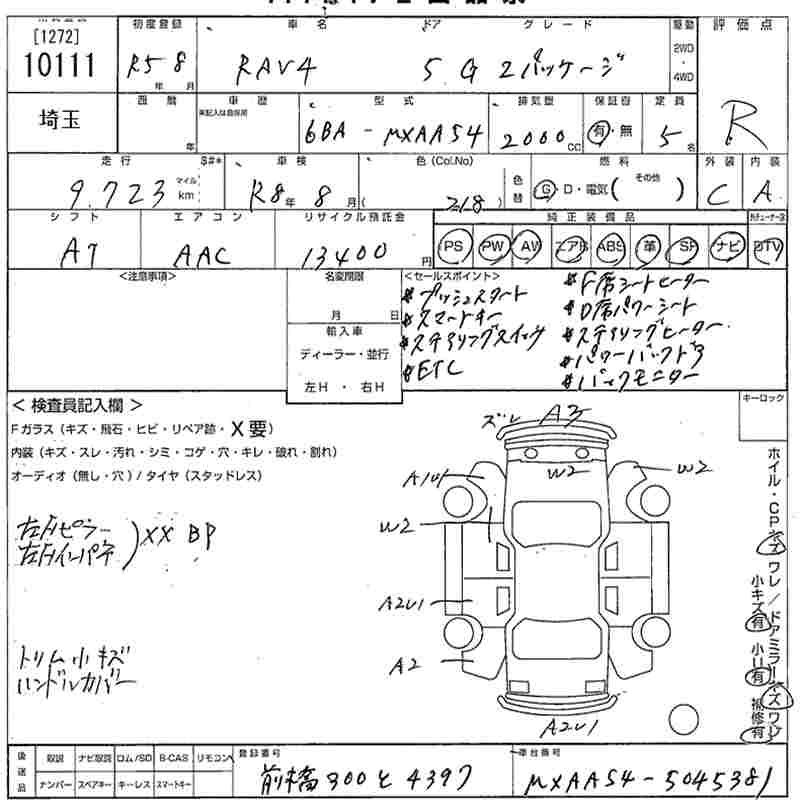 [1272]
10111
埼玉
初度登録 車名 ドア グレード 駆動 評価点
R5 8 年 月 RAV4 5 G Zパッケージ 2WD ・ 4WD R
西暦 車歴 型式 排気量 保証書 定員
年 未記入は自家用 6BA - MXAA54 2000 CC 有・無 5 名
走行 $#* 車検 色(Col.No) 色替 燃料 外装 内装
9,723 マイル km R8年 8月( 218 ) G・D・電気( その他 ) C A
シフト エアコン リサイクル預託金 純正装備品
AT AAC 13400 円 PS PW AW エアB ABS 革 SR ナビ DTV
<注意事項> 名変期限 <セールスポイント>
月 日
輸入車
ディーラー・並行
左H ・ 右H
*プッシュスタート
*スマートキー
*ステアリングスイッチ
*ETC
*F席シートヒーター
*D席パワーシート
*ステアリングヒーター
*パワーバックドア
*バックモニター
<検査員記入欄> キーロック
Fガラス(キズ・飛石・ヒビ・リペア跡・X要)
内装(キズ・スレ・汚れ・シミ・コゲ・穴・キレ・破れ・割れ)
オーディオ(無し・穴)/タイヤ(スタッドレス)
左Aピラー
左Aインパネ
)XX BP
トリム小キズ
ハンドルカバー
ズレ A3
W2
W2
A1U1
W2
A2U1
A2
A2U1
ホイル・CPキズ ワレ/ドアミラーキズ ワレ
小キズ有 小U有 補修有
後送品 取説 ナビ取説 ロム/SD B-CAS リモコン
ナンバー スペアキー キーレス スマートキー
登録番号
前橋300と4397
車台番号
MXAA54-5045381